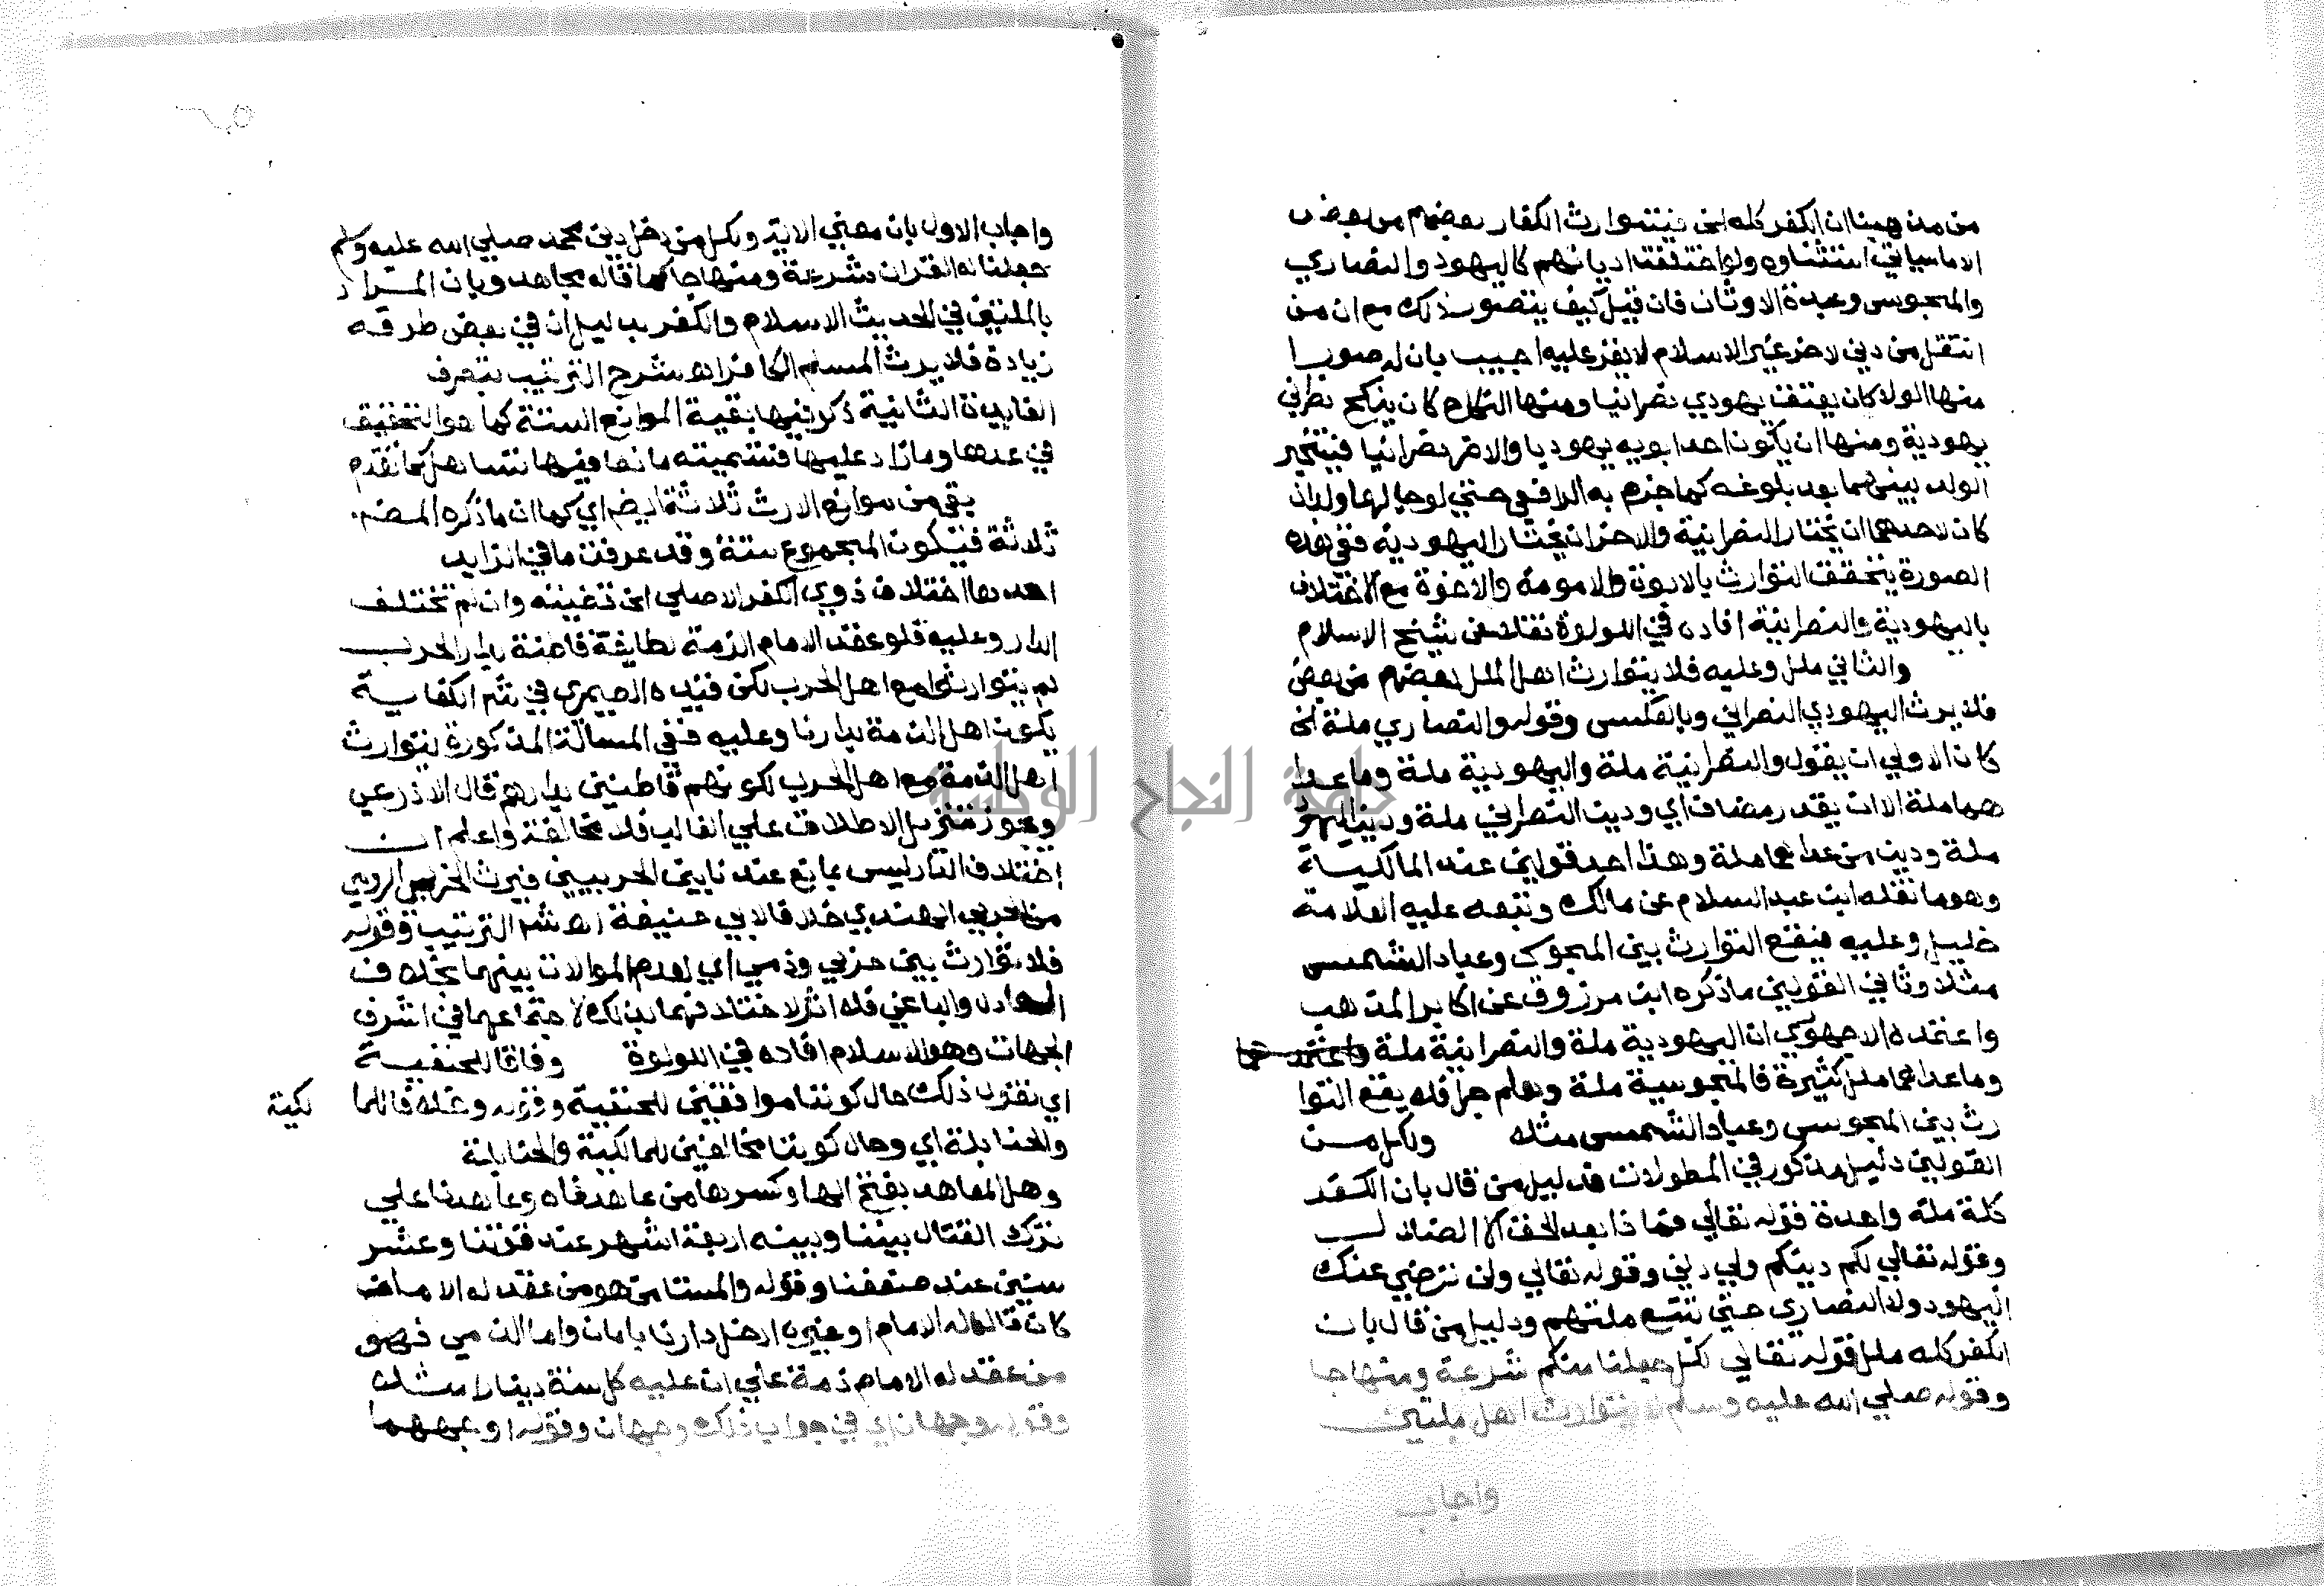 من مذهبنا ان الكفر كله الخ فيتوارث الكفار بعضهم من بعض
الا ما سياتي استثناوه ولو اختلفت اديانهم كاليهود والنصاري
والمجوس وعبدة الاوثان فان قيل كيف يتصور ذلك مع ان من
انتقل من دين لاخر غير الاسلام لا يقر عليه اجيب بان له صورا
منها الولا كان يعتق يهودي نصرانيا ومنها النكاح كان ينكح نصراني
يهودية ومنها ان يكون احد ابويه يهوديا والاخر نصرانيا فيتخير
الولد بينهما بعد بلوغه كما جزم به الرافعي حتي لو جا لهما ولدان
كان لاحدهما ان يختار النصرانية والاخر ان يختار اليهودية ففي هذه
الصورة يتحقق التوارث بالابوة والامومة والاخوة مع الاختلاف
باليهودية والنصرانية افاده في اللولوة نقلا عن شيخ الاسلام
والثاني ملل وعليه فلا يتوارث اهل الملل بعضهم من بعض
فلا يرث اليهودي النصراني وبالعكس وقوله والنصاري ملة الخ
كان الاولي ان يقول والنصرانية ملة واليهودية ملة وما عدا
هما ملة الا ان يقدر مضاف اي ودين النصراني ملة ودين اليهود
ملة ودين من عداهما ملة وهذا احد قولين عند المالكية
وهو ما نقله ابن عبد السلام عن مالك وتبعه عليه العلامة
خليل وعليه فيقع التوارث بين المجوس وعباد الشمس
مثلا وثاني القولين ما ذكره ابن مرزوق عن اكابر المذهب
واعتمده الاجهوري ان اليهودية ملة والنصرانية ملة
وما عداهما ملل كثيرة فالمجوسية ملة وهلم جرا فله يقع التوا
رث بين المجوسي وعباد الشمس مثلا ولكل من
القولين دليل مذكور في المطولات فدليل من قال بان الكفر
كله ملة واحدة قوله تعالي فماذا بعد الحق الا الضلال
وقوله تعالي لكم دينكم ولي دين وقوله تعالي ولن ترضي عنك
اليهود ولا النصاري حتي تتبع ملتهم ودليل من قال بان
الكفر كله ملل قوله تعالي لكل جعلنا منكم شرعة ومنهاجا
وقوله صلي الله عليه وسلم لا يتوارث اهل ملتين
واجاب
واجاب الاول بان معني الاية ولكل من دخل دين محمد صلي الله عليه وسلم
جعلنا له القران شرعة ومنهاجا كما قاله مجاهد وبان المراد
بالملتين في الحديث الاسلام والكفر بدليل ان في بعض طرقه
زيادة فلا يرث المسلم الكافر اه شرح الترتيب بتصرف
الفايدة الثانية ذكر فيها بقية الموانع الستة كما هو التحقيق
في عدها وما زاد عليها فتسميته مانعا فيها تساهل كما تقدم
بقي من موانع الارث ثلاثة ايضا اي كما ان ما ذكره المصنف
ثلاثة فيكون المجموع ستة وقد عرفت ما في الزايد
احدها اختلاف ذوي الكفر الاصلي الخ قضيته وان لم تختلف
الدار وعليه فلو عقد الامام الذمة لطايفة قاطنة بدار الحرب
لم يتوارثوا مع اهل الحرب لكن قيده الصيمري في شر الكفاية
بكون اهل الذمة بدارنا وعليه ففي المسالة المذكورة يتوارث
اهل الذمة مع اهل الحرب لكونهم قاطنين بدارهم قال الاذرعي
ويجوز تنزيل الاطلاق علي الغالب فلا مخالفة واعلم ان
اختلاف الدار ليس بمانع عندنا بين الحربيين فيرث الحربي الرومي
من الحربي الهندي خلافا لابي حنيفة اه شر الترتيب وقوله
فلا توارث بين حربي وذمي اي لعدم الموالات بينهما بخلاف
العادل والباغي فله اثر لاختلافهما بذلك لاجتماعهما في اشرف
الجهات وهو الاسلام افاده في اللولوة وفاقا للحنفية
اي نقول ذلك حال كوننا موافقين للحنفية وقوله وخلافا للما لكية
والحنابلة اي وحال كوننا مخالفين للمالكية والحنابلة
وهل المعاهد بفتح الها وكسرها من عاهدناه وعاهدنا علي
ترك القتال بيننا وبينه اربعة اشهر عند قوتنا وعشر
سنين عند ضعفنا وقوله والمستامن هو من عقد له الامان
كان قال له الامام او غيره ادخل دارنا بامان واما الذمي فهو
من عقد له الامام ذمة علي ان عليه كل سنة دينارا مثلا
وقوله وجهان اي في جواب ذلك وجهان وقوله اوجههما